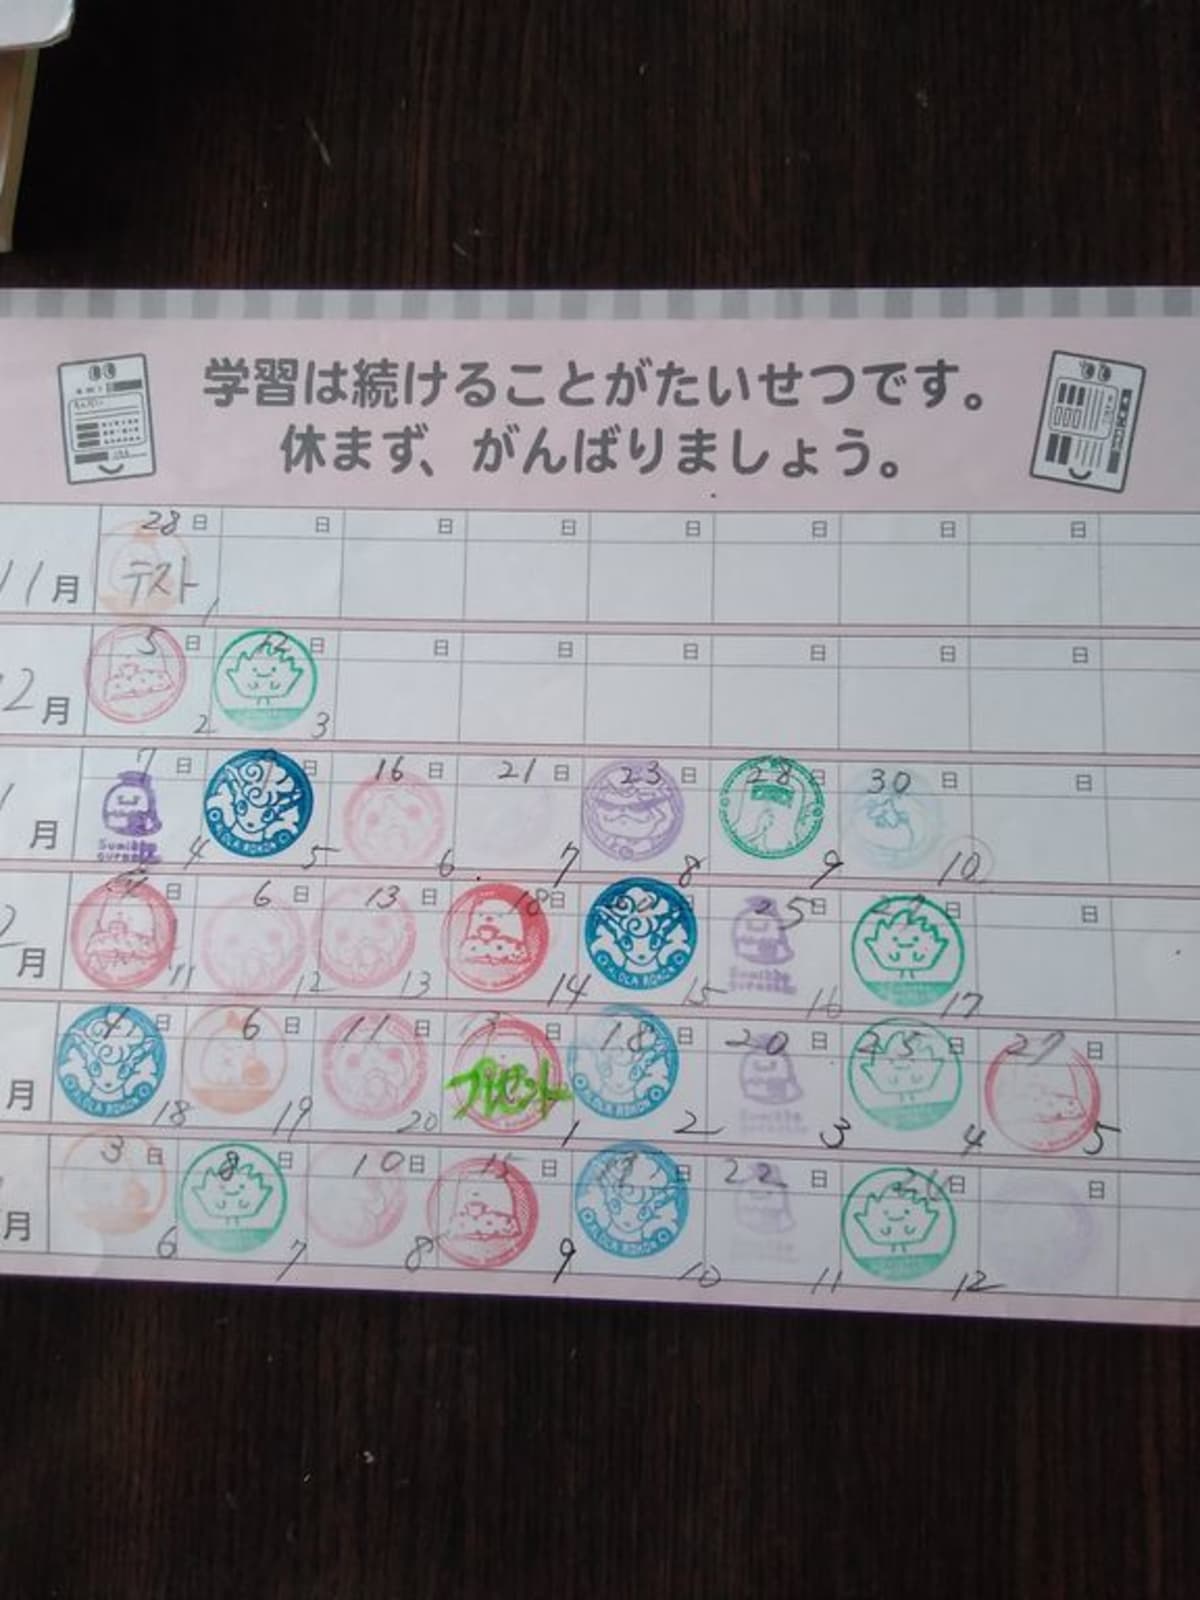 学習は続けることがたいせつです。
休まず、がんばりましょう。
28日 日 日 日 日 日 日 日
11月 テスト 1
5日 12日 日 日 日 日 日 日
2月 2 3
7日 日 16日 21日 23日 28日 30日 日
1月 4 5 6 7 8 9 10
Sumikko ALOLA ROKON
gurashi
日 6日 13日 18日 日 25日 27日 日
2月 11 12 13 14 15 16 17
ALOLA ROKON Sumikko
gurashi
4日 6日 11日 13日 18日 20日 25日 27日
月 18 19 20 プレゼント 1 2 3 4 5
ALOLA ROKON ALOLA ROKON
3日 8日 10日 15日 日 22日 日 日
月 6 7 8 9 10 11 12
ALOLA ROKON